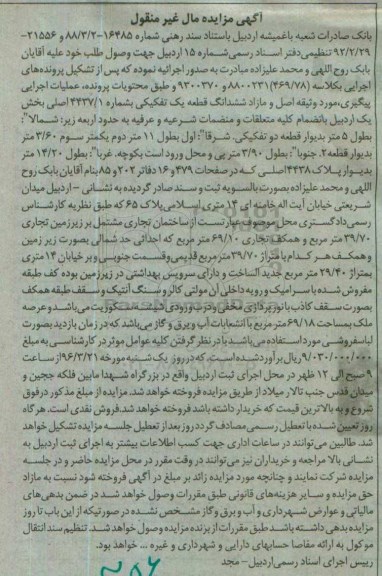 آگهی مزایده مال غیر منقول
بانک صادرات شعبه باغمیشه اردبیل باستناد سند رهنی شماره ۱۶۴۸۵-۸۸/۳/۲ و ۲۱۵۵۶-
۹۲/۲/۲۹ تنظیمی دفتر اسناد رسمی شماره ۱۵ اردبیل جهت وصول طلب خود علیه آقایان
بابک روح اللهی و محمد علیزاده مبادرت به صدور اجرائیه نموده که پس از تشکیل پرونده‌های
اجرایی ۸۸۰۰۲۳۱(۴۶۹/۷۸) و ۹۳۰۰۳۷۰ و طبق محتویات پرونده، عملیات اجرایی
پیگیری، مورد وثیقه اصل و مازاد ششدانگ قطعه یک تفکیکی بشماره ۴۴۳۷/۱ اصلی بخش
یک اردبیل بانضمام کلیه متعلقات و منضمات شرعیه و عرفیه به حدود اربعه زیر: شمالا":
بطول ۵ متر بدیوار قطعه دو تفکیکی. شرقا": اول بطول ۱۱ متر دوم یکمتر سوم ۳/۶۰ متر
بدیوار قطعه ۲. جنوبا": بطول ۳/۹۰ متر پی و محل ورود است بکوچه. غربا": بطول ۱۴/۲۰ متر
بدیوار پلاک ۴۴۳۸ اصلی که در صفحات ۴۷۹ و ۱۶ دفاتر ۲۰۲ و ۸۵ بنام آقایان بابک روح
اللهی و محمد علیزاده بصورت بالسویه ثبت و سند صادر گردیده به نشانی - اردبیل میدان
شریعتی خیابان آیت اله خامنه ای ۱۴ متری اسلامی پلاک ۶۵ که طبق نظریه کارشناس
رسمی دادگستری محل موصوف عبارتست از ساختمان تجاری مشتمل بر زیرزمین تجاری
۳۹/۷۰ متر مربع و همکف تجاری ۶۹/۱۰ متر مربع که احداثی حد شمالی بصورت زیر زمین
و همکف هر کدام با متراژ ۳۹/۷۰ متر مربع قدیمی و قسمت جنوبی و بر خیابان ۱۴ متری
بمتراژ ۲۹/۴۰ متر مربع جدید الساخت و دارای سرویس بهداشتی در زیرزمین بوده کف طبقه
مفروش شده با سرامیک و رویه داخلی آن مولتی کالر و سنگ آنتیک و سقف طبقه همکف
بصورت سقف کاذب با نورپردازی مخفی و درب ورودی شیشه سکوریت می‌باشد و عرصه
ملک بمساحت ۶۹/۱۸ متر مربع با انشعابات آب و برق و گاز می‌باشد که در زمان بازدید بصورت
لباسفروشی مورد استفاده می‌باشد با در نظر گرفتن کلیه عوامل موثر در کارشناسی به مبلغ
۹/۰۳۰/۰۰۰/۰۰۰ ریال برآورد شده است، که در روز یک شنبه مورخه ۹۶/۳/۲۱ از ساعت
۹ صبح الی ۱۲ ظهر در محل اجرای ثبت اردبیل واقع در بزرگراه شهدا مابین فلکه ججین و
میدان قدس جنب تالار میلاد از طریق مزایده فروخته خواهد شد. مزایده از مبلغ مذکور در فوق
شروع و به بالاترین قیمت که خریدار داشته باشد فروخته خواهد شد. فروش نقدی است. هرگاه
روز تعیین شده با تعطیل رسمی مصادف گردد روز بعد از تعطیل جلسه مزایده تشکیل خواهد
شد. طالبین می‌توانند در ساعات اداری جهت کسب اطلاعات بیشتر به اجرای ثبت اردبیل به
نشانی بالا مراجعه و خریداران نیز می‌توانند در وقت مقرر در محل مزایده حاضر و در جلسه
مزایده شرکت نمایند و چنانچه مورد مزایده زائد بر مبلغ در آگهی فروخته شود نسبت به مازاد
حق مزایده و سایر هزینه‌های قانونی طبق مقررات وصول خواهد شد در ضمن بدهی‌های
مالیاتی و عوارض شهرداری و آب و برق و گاز مشخص نشده در صورتیکه از این باب تا روز
مزایده بدهی داشته باشد طبق مقررات از برنده مزایده وصول خواهد شد. تنظیم سند انتقال
موکول به ارائه مفاصا حسابهای دارایی و شهرداری و غیره ... خواهد بود.
رییس اجرای اسناد رسمی اردبیل - مجد